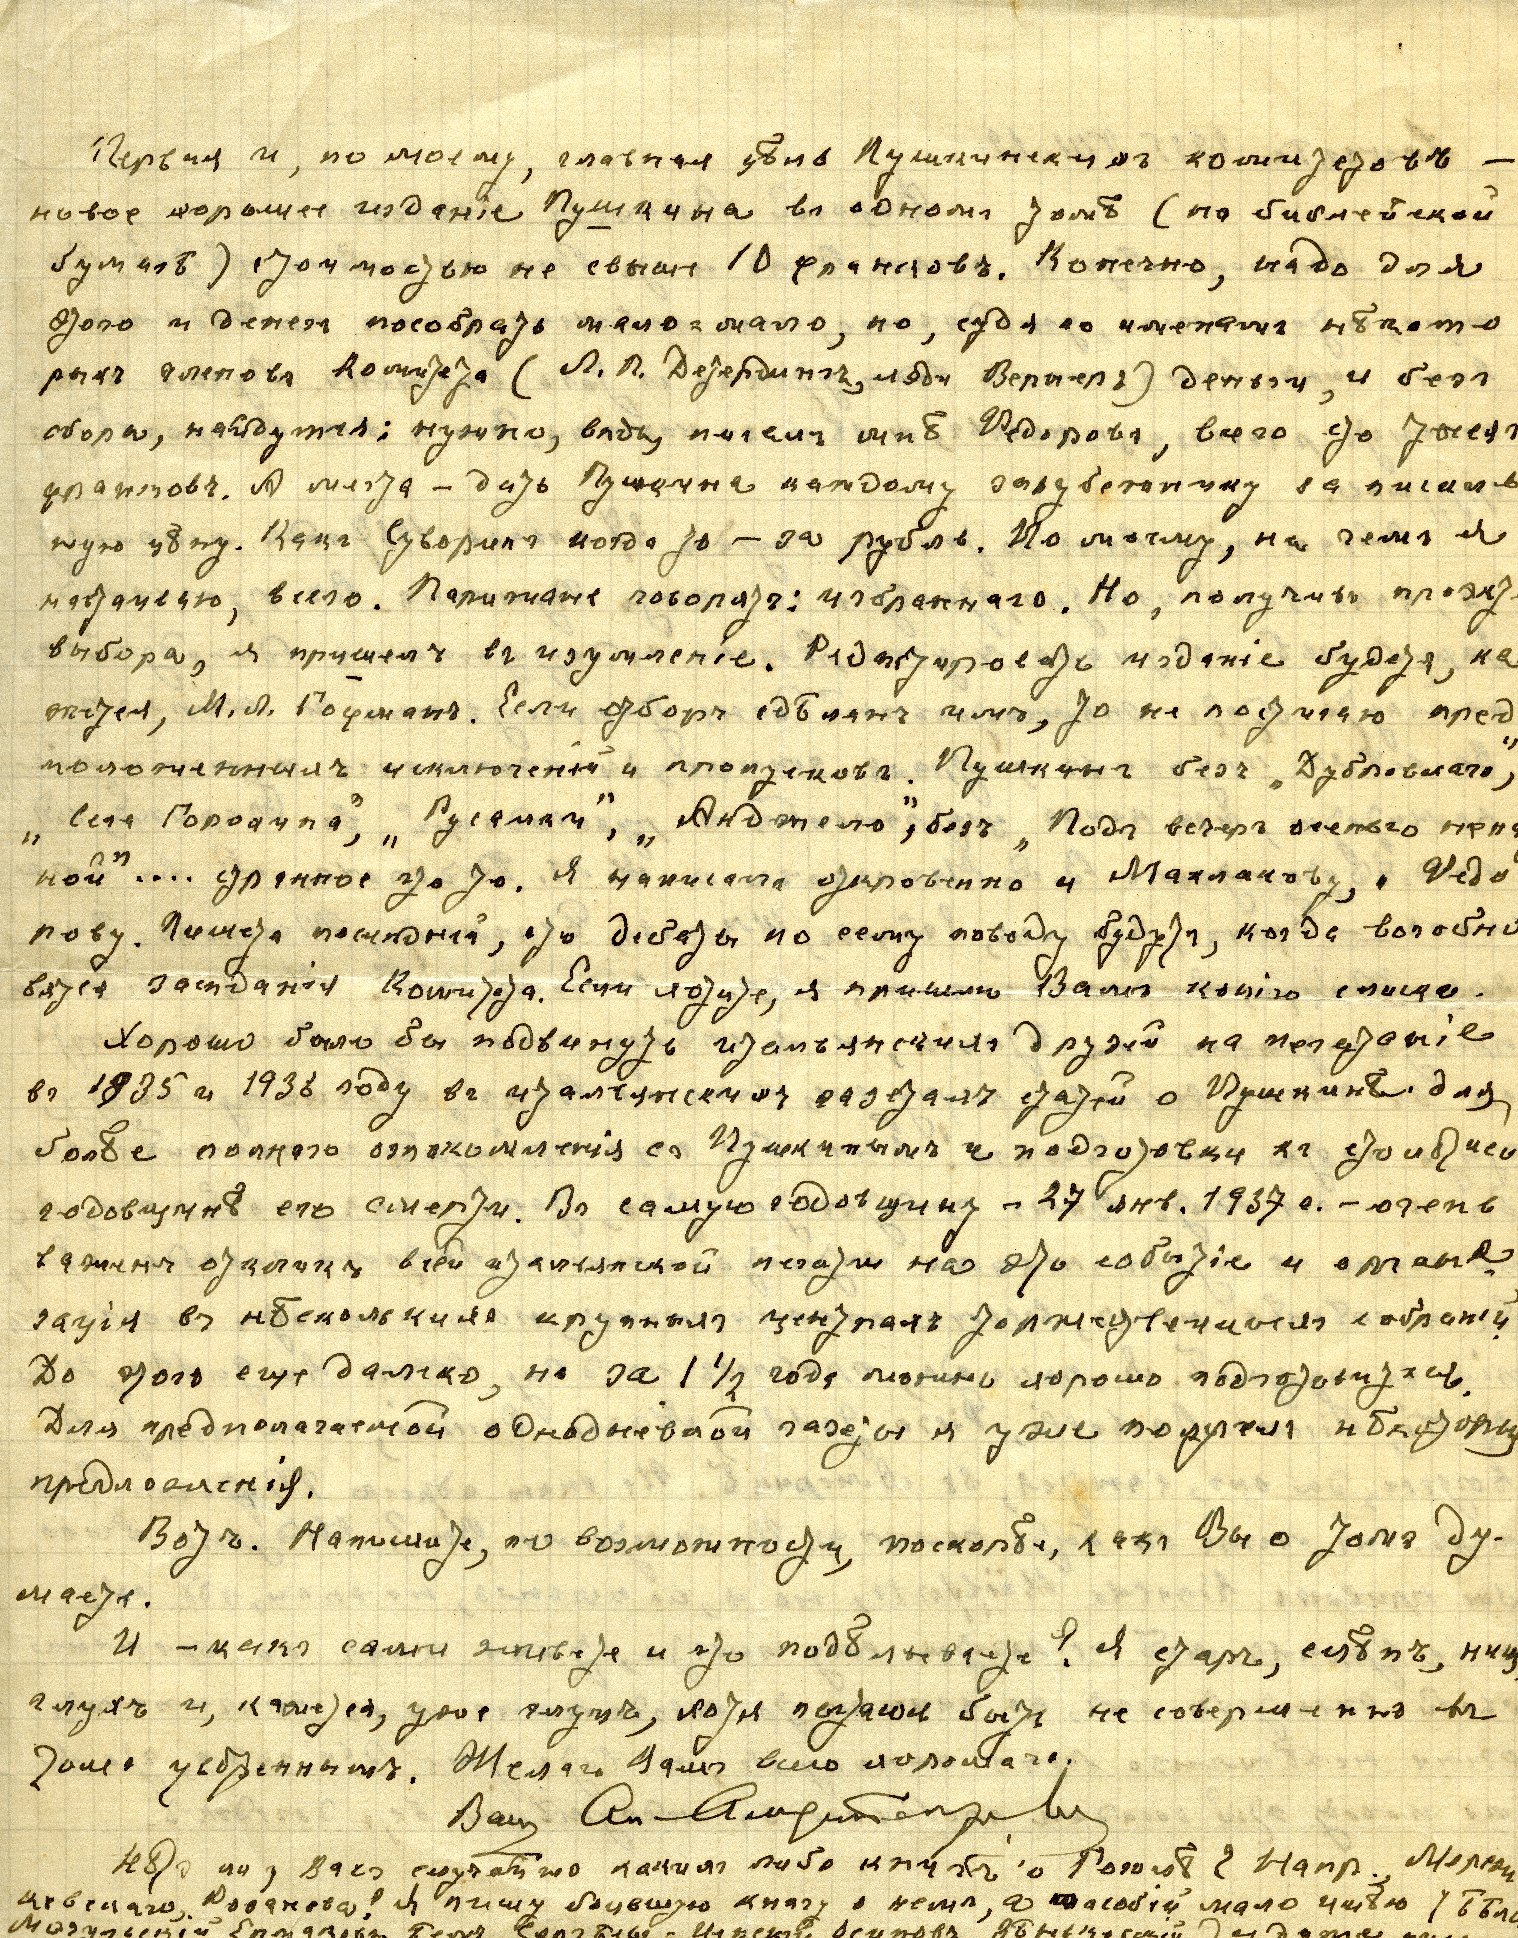 Первая и, по моему, главная цѣль Пушкинскихъ комитетовъ —
новое хорошее изданіе Пушкина въ одномъ томѣ (на библейской
бумагѣ) стоимостью не свыше 10 франковъ. Конечно, надо для
этого и денегъ пособрать малая мало, но, судя по именамъ нѣкото
рыхъ членовъ Комитета (Л. П. Детердингъ, лэди Вернеръ) деньги, и безъ
сбора, найдутся: нужно, вѣдь, писалъ мнѣ Ѳедоровъ, всего сто тысячъ
франковъ. А мечта — дать Пушкина каждому зарубежнику за
ную цѣну. Какъ Суворинъ когда то — за рубль. По моему, на чемъ я
настаиваю, всего. Парижане говорятъ: избраннаго. Но, получивъ проэкт
выбора, я пришелъ въ изумленіе. Редактировать изданіе будетъ, ка
жется, М. Л. Гофманъ. Если отборъ сдѣланъ имъ, то не постигаю пред
положенныхъ исключеній и пропусковъ. Пушкинъ безъ „Дубровскаго",
„Села Горохина", „Русалки", „Анджело", безъ „Подъ вечеръ осенью ненаст
ной".... странное что то. Я написалъ откровенно и Маклакову, и Ѳедо
рову. Пишетъ послѣдній, что дебаты по сему поводу будутъ, когда возобно
вятся засѣданія Комитета. Если хотите, я пришлю Вамъ копію списка.
Хорошо было бы подвинуть итальянскихъ друзей на печатаніе
въ 1935 и 1936 году въ итальянскихъ газетахъ статей о Пушкинѣ для
болѣе полнаго ознакомленія съ Пушкинымъ и подготовки къ столѣтней
годовщинѣ его смерти. Въ самую годовщину — 27 янв. 1937 г. — очень
важенъ откликъ всей итальянской печати на это событіе и органи
зація въ нѣсколькихъ крупныхъ центрахъ торжественныхъ собраній.
До этого еще далеко, но за 1 1/2 года можно хорошо подготовиться.
Для предполагаемой однодневной газеты я уже получилъ нѣкоторыя
предложенія.
Вотъ. Напишите, по возможности, поскорѣе, какъ Вы о томъ ду-
маете.
И — какъ сами живете и что подѣлываете? Я старъ, слѣпъ, нищ,
глухъ и, кажется, уже глупъ, хотя пытаюсь быть не совершенно въ
томъ увѣреннымъ. Желаю Вамъ всего хорошаго.
Вашъ Ал. Амфитеатровъ
Нѣтъ ли у Васъ случайно какихъ либо книгъ о Гоголѣ? Напр., Мереж
ковскаго, Розанова? Я пишу большую книгу о немъ, а пособій мало имѣю